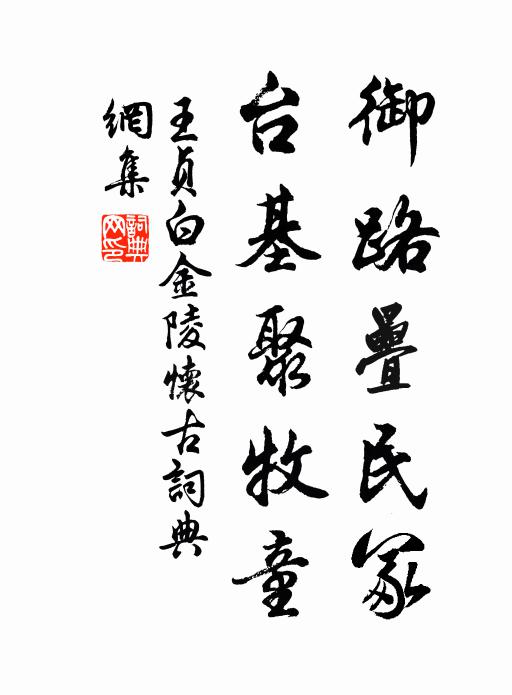 御路疊民冢
台基聚牧童
王貞白金陵懷古詞典
網集
詞典
网印